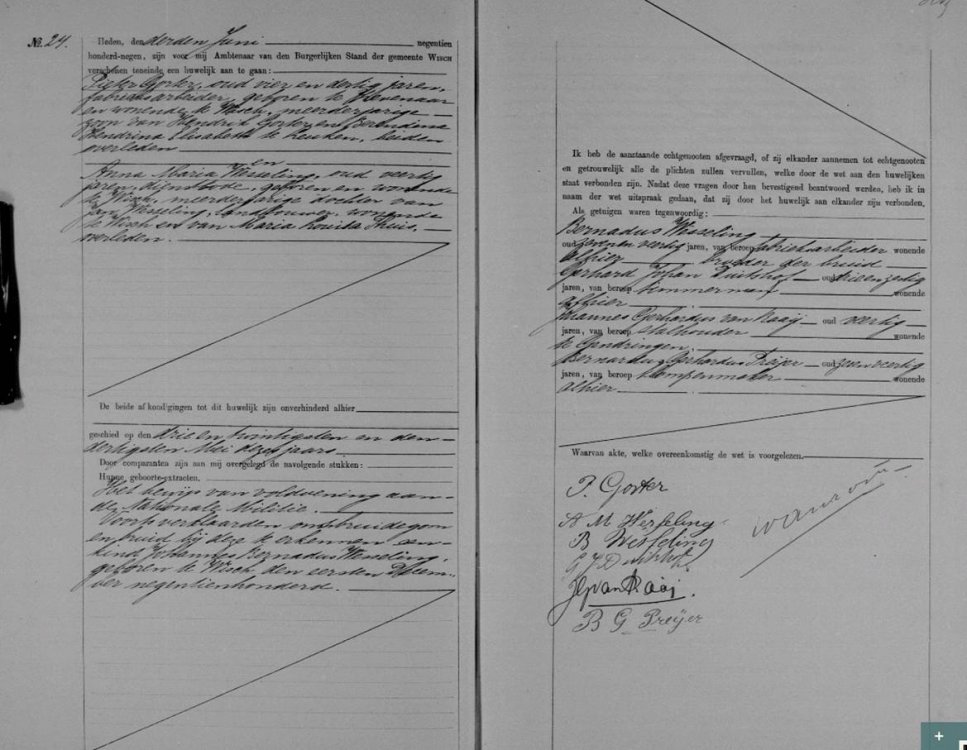 No. 24.
Heden, den derden Juni negentien
honderd-negen, zijn voor mij Ambtenaar van den Burgerlijken Stand der gemeente WISCH
verschenen teneinde een huwelijk aan te gaan:
Pieter Gorter, oud vier en dertig jaren,
fabrieksarbeider, geboren te Zevenaar
en wonende te Wisch, meerderjarige
zoon van Hendrik Gorter en Berendina
Hendrina Elisabeth te beiden
overleden
en
Anna Maria Wesseling, oud veertig
jaren, dienstbode, geboren en wonende
te Wisch, meerderjarige dochter van
Jan Wesseling, landbouwer, wonende
te Wisch en van Maria Louisa Thuis,
overleden.
De beide afkondigingen tot dit huwelijk zijn onverhinderd alhier
geschied op den drie en twintigsten en den
dertigsten Mei dezes jaars.
Door comparanten zijn aan mij overgelegd de navolgende stukken:
Hunne geboorte-extracten.
Het bewijs van voldoening aan
de Nationale Militie.
Voorts verklaarden bruidegom
en bruid bij deze te erkennen een
kind, Johannes Bernadus Wesseling,
geboren te Wisch den eersten Decem-
ber negentienhonderd.
Ik heb de aanstaande echtgenooten afgevraagd, of zij elkander aannemen tot echtgenooten
en getrouwelijk alle de plichten zullen vervullen, welke door de wet aan den huwelijken
staat verbonden zijn. Nadat deze vragen door hen bevestigend beantwoord werden, heb ik in
naam der wet uitspraak gedaan, dat zij door het huwelijk aan elkander zijn verbonden.
Als getuigen waren tegenwoordig:
Bernadus Wesseling
oud veertig jaren, van beroep fabrieksarbeider wonende
alhier broeder der bruid
Gerhard Johan oud drie en zestig
jaren, van beroep timmerman wonende
alhier
Johannes Gerhardus van Raaij oud veertig
jaren, van beroep stalhouder wonende
te Gendringen.
Bernardus Gerhardus Preijer oud veertig
jaren, van beroep klompenmaker wonende
alhier
Waarvan akte, welke overeenkomstig de wet is voorgelezen.
P. Gorter
A M Wesseling
B Wesseling
G J
JG van Raaij.
B G Preijer